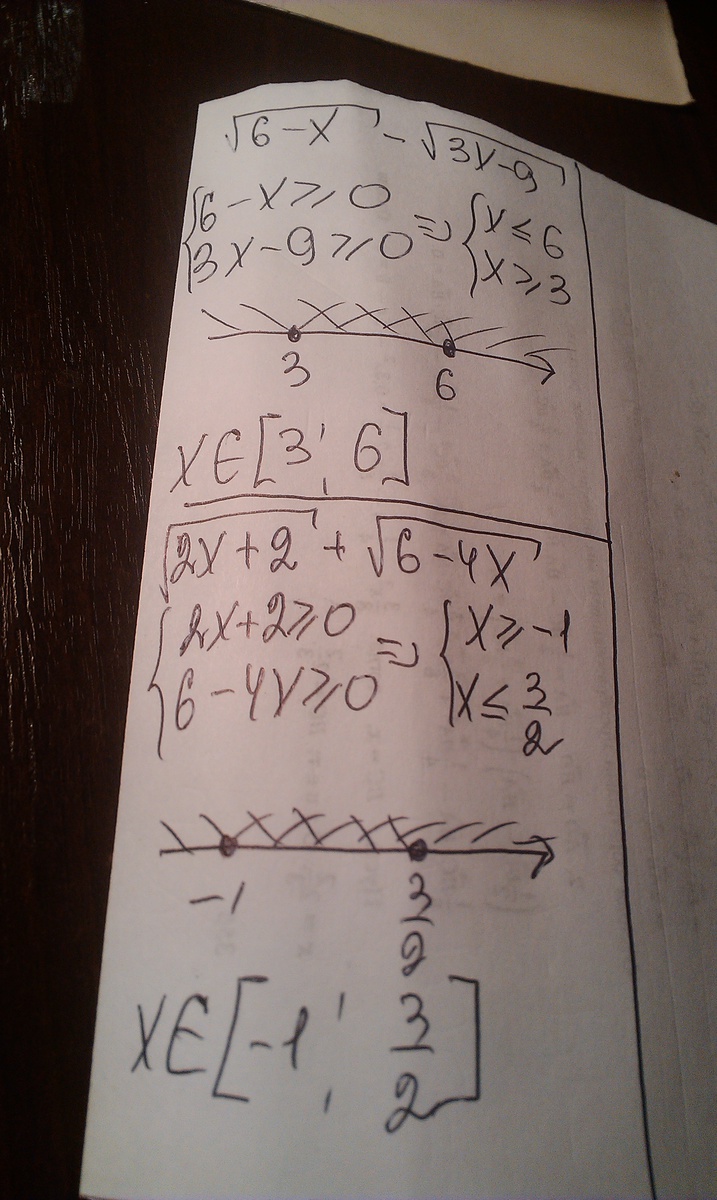 √6-x - √3x-9
{6-x⩾0
3x-9⩾0 => {x≤6
x⩾3
3 6
x∈[3; 6]
√2x+2 + √6-4x
{2x+2⩾0
6-4x⩾0 => {x⩾-1
x≤3/2
-1 3/2
x∈[-1; 3/2]